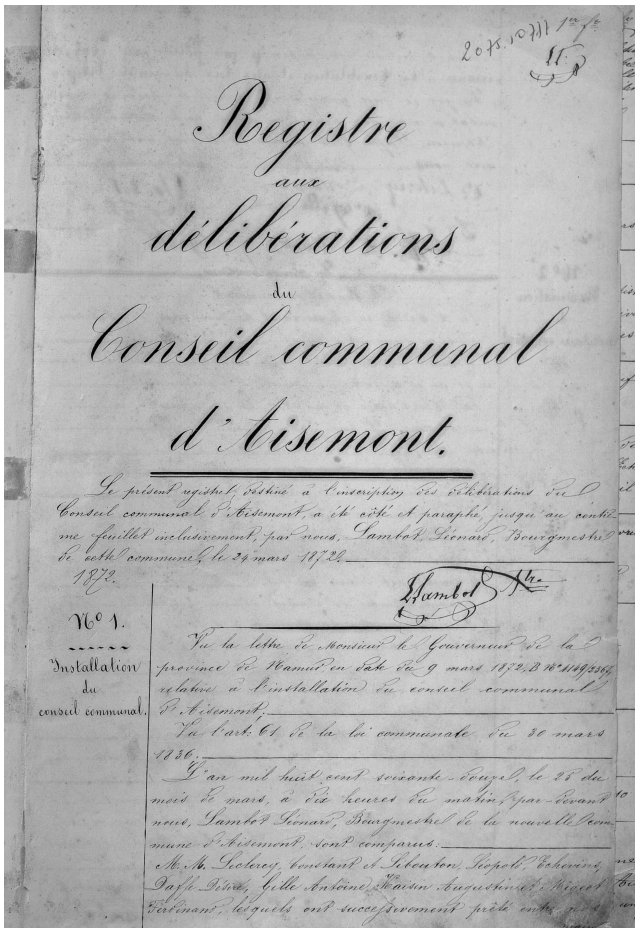 1er f.
Registre
aux
délibérations
du
Conseil communal
d'Aisemont.
Le présent registre, destiné à l'inscription des délibérations du
Conseil communal d'Aisemont, a été côté et paraphé jusqu'au centiè
me feuillet inclusivement, par nous, Lambot, Léonard, Bourgmestre
de cette commune, le 24 mars 1872.
1872.
LLambot
N° 1.
Installation
du
conseil communal.
Vu la lettre de Monsieur le Gouverneur de la
province de Namur en date du 9 mars 1872,
relative à l'installation du conseil communal
d'Aisemont;
Vu l'art: 61 de la loi communale du 30 mars
1836.
L'an mil huit cent soixante-douze, le 25 du
mois de mars, à dix heures du matin, par-devant
nous, Lambot Léonard, Bourgmestre de la nouvelle com
mune d'Aisemont, sont comparus:
M. M. Leclercq, Constant et Libouton, Léopold, Echevins,
Désiré, Gille Antoine, Haisin Augustin et
Ferdinand, lesquels ont successivement prêté entre